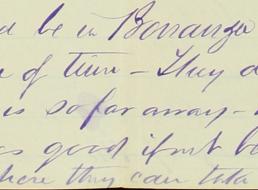 d be in Bonanza
e of time - They a
is so far away -
as good if not be
where they can take